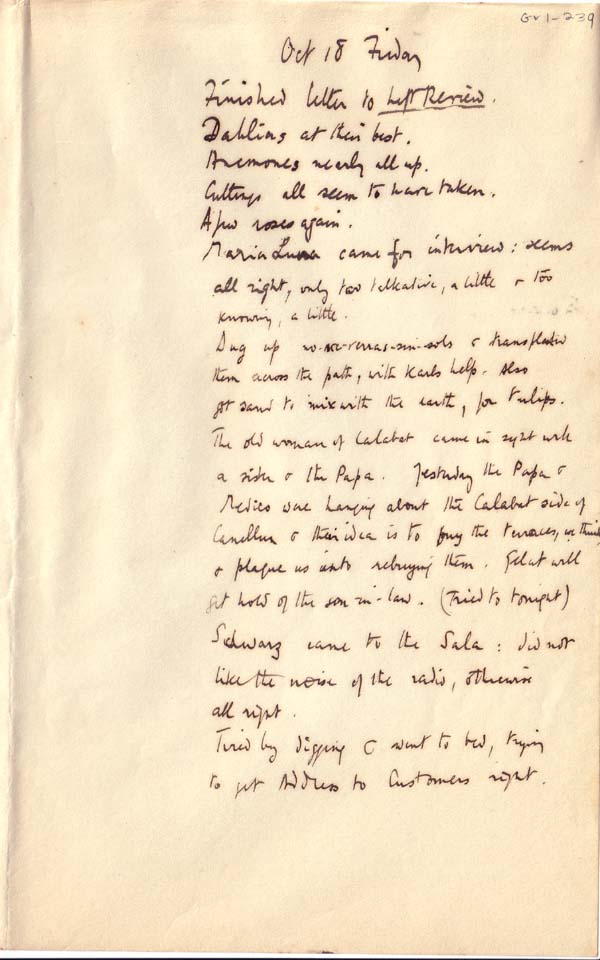 GV1-239
Oct 18 Friday
Finished letter to Left Review.
Dahlias at their best.
Anemones nearly all up.
Cuttings all seem to have taken.
A few roses again.
Maria Luna came for interview: seems
all right, only too talkative, a little & too
knowing, a little.
Dug up & transplanted
them across the path, with Karl's help. Also
got sand to mix with the earth, for tulips.
The old woman of Calabat came in sight with
a sister & the Papa. Yesterday the Papa &
Medico were hanging about the Calabat side of
Canellun & their idea is to buy the terraces, we think
& plague us into rebuying them. Gelat will
get hold of the son-in-law. (Tried to tonight)
Schwarz came to the Sala: did not
like the noise of the radio, otherwise
all right.
Tired by digging & went to bed, trying
to get Address to Customers right.